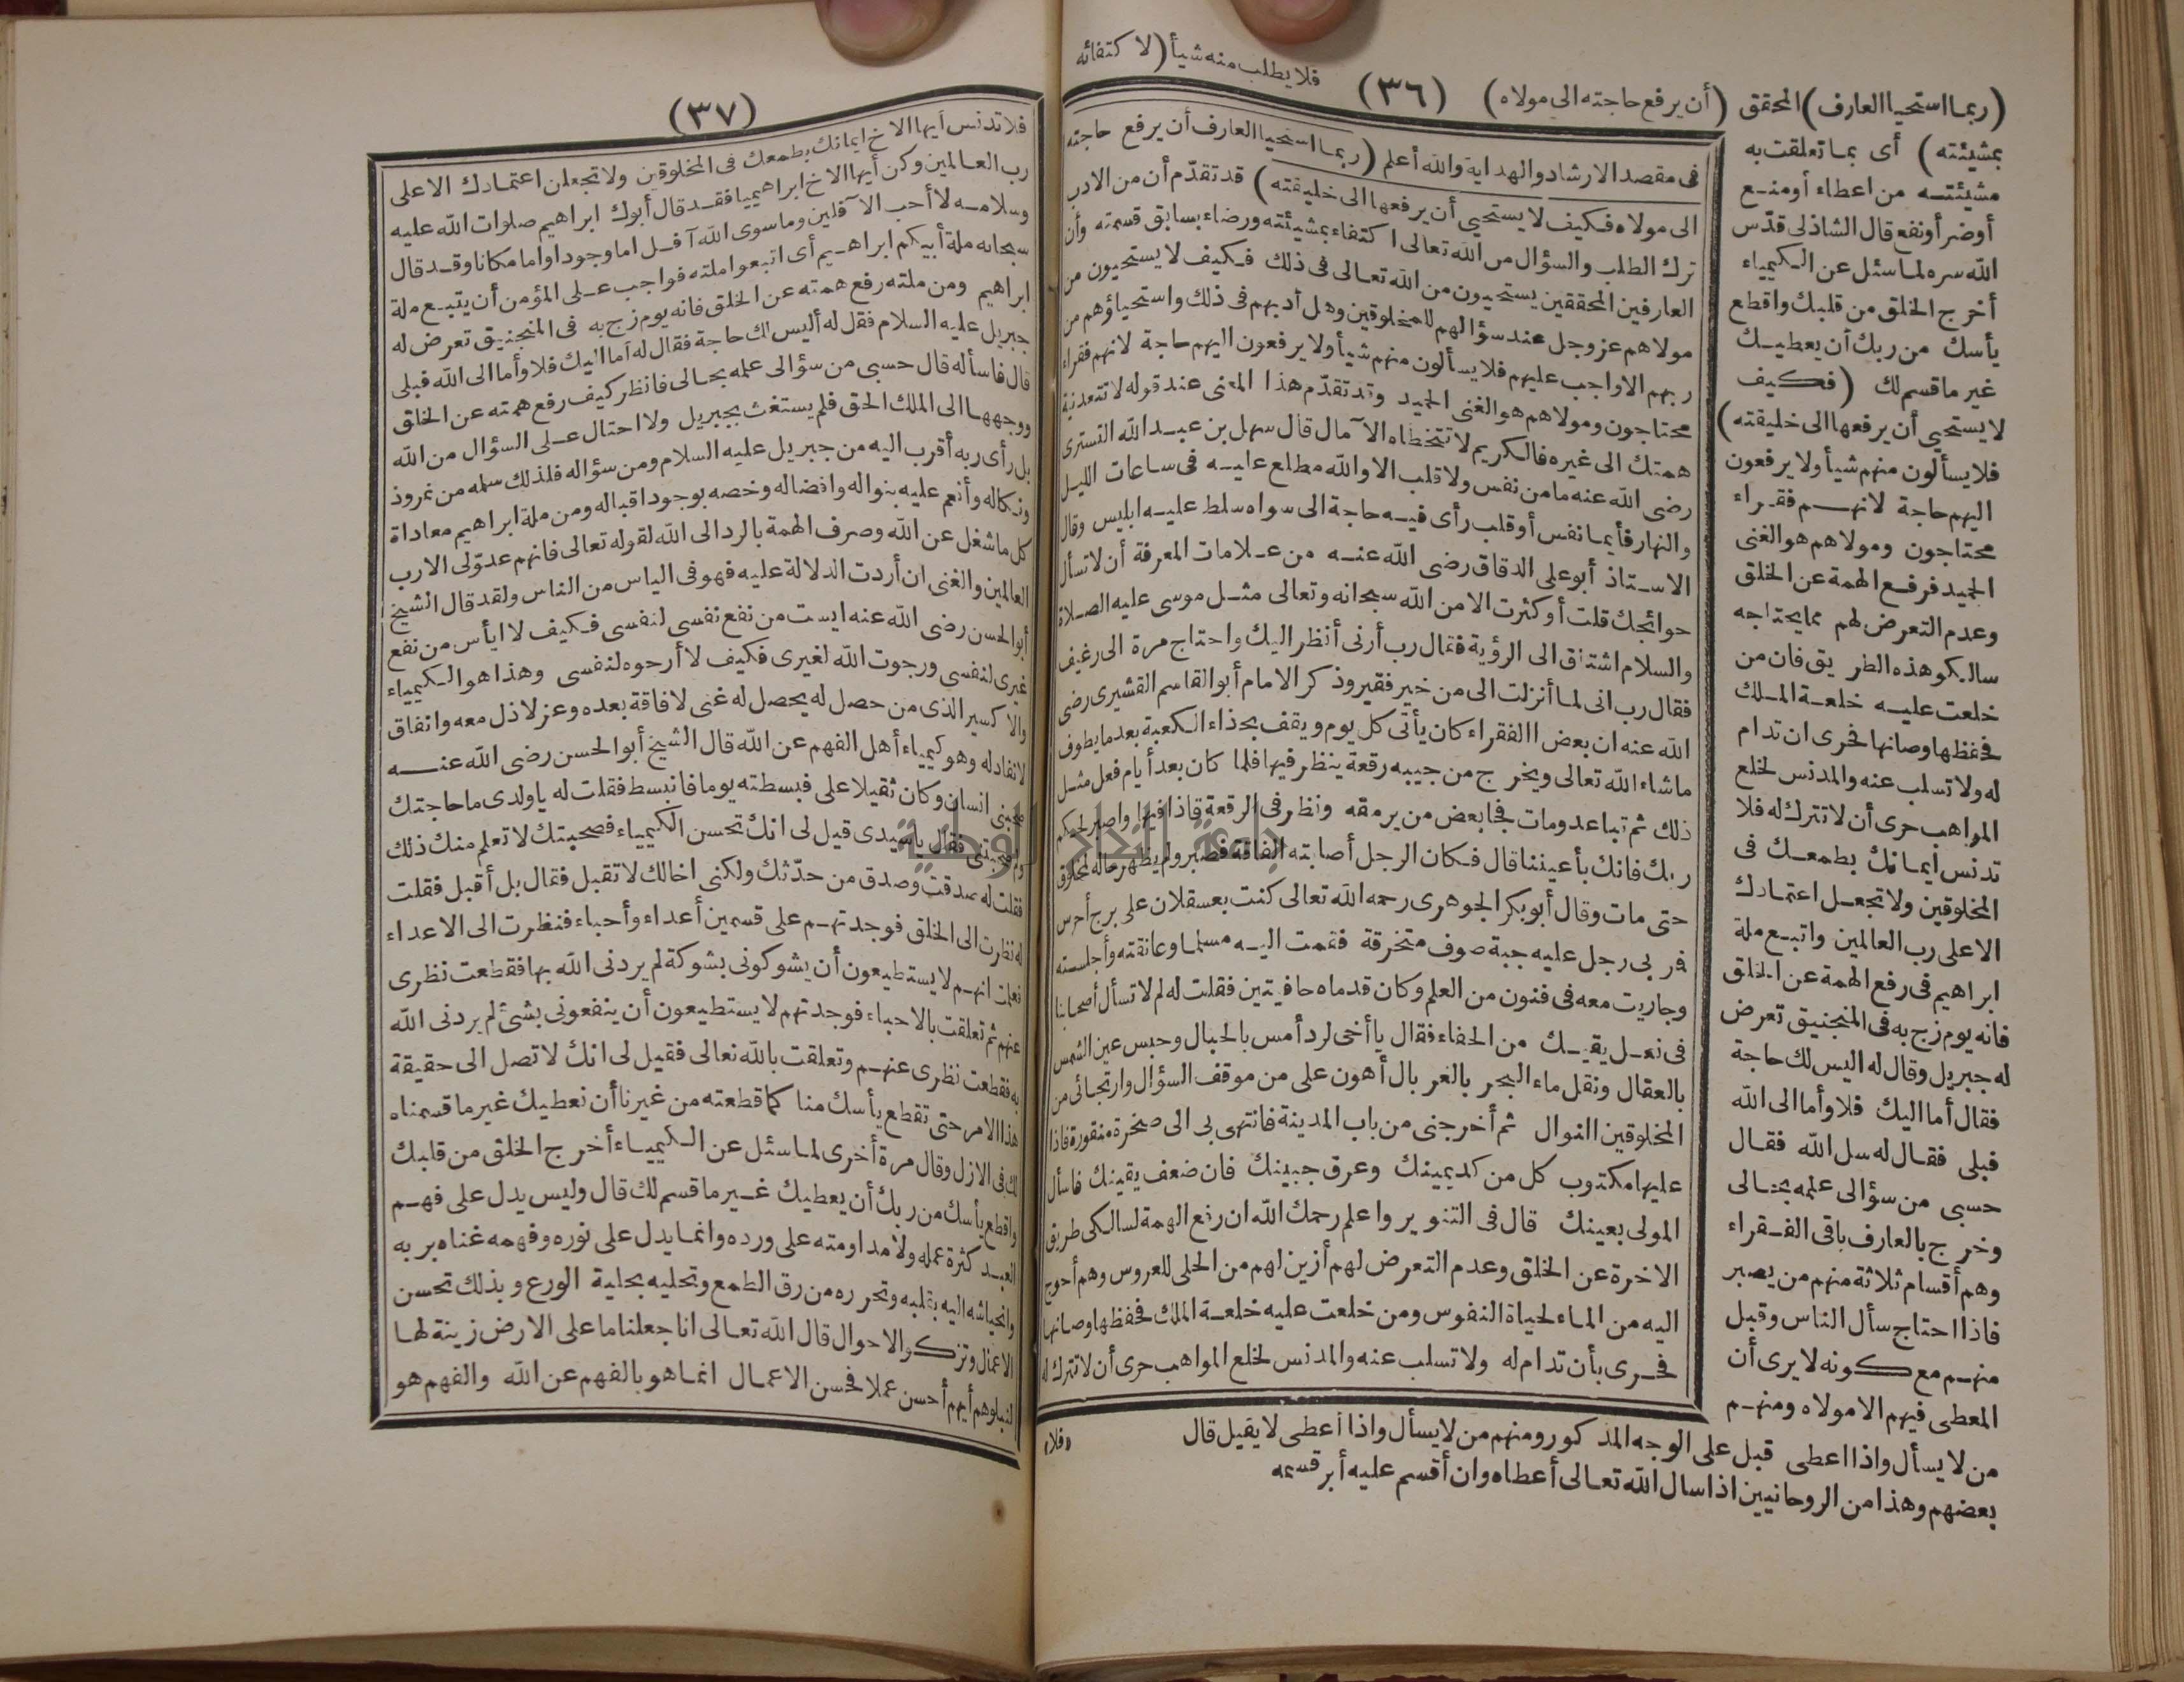 (ربما استحيا العارف) المحقق (أن يرفع حاجته الى مولاه) (٣٦) فلا يطلب منه شيأ (لا كتفائه
بمشيئته) أى بما تعلقت به
مشيئته من اعطاء أو منع
أو ضر أو نفع قال الشاذلى قدّس
الله سره لما سئل عن الكيمياء
أخرج الخلق من قلبك واقطع
يأسك من ربك أن يعطيك
غير ما قسم لك (فكيف
لا يستحيي أن يرفعها الى خليقته)
فلا يسألون منهم شيأ ولا يرفعون
اليهم حاجة لانهم فقراء
محتاجون ومولاهم هو الغنى
الحميد فرفع الهمة عن الخلق
وعدم التعرض لهم مما يحتاجه
سالكو هذه الطريق فان من
خلعت عليه خلعة الملك
فحفظها وصانها فحرى ان تدام
له ولا تسلب عنه والمدنس لخلع
المواهب حرى أن لا تترك له فلا
تدنس ايمانك بطمعك فى
المخلوقين ولا تجعل اعتمادك
الا على رب العالمين واتبع ملة
ابراهيم فى رفع الهمة عن الخلق
فانه يوم زج به فى المنجنيق تعرض
له جبريل وقال له اليس لك حاجة
فقال أما اليك فلا وأما الى الله
فبلى فقال له سل الله فقال
حسبى من سؤالى علمه بحالى
وخرج بالعارف باقى الفقراء
وهم أقسام ثلاثة منهم من يصبر
فاذا احتاج سأل الناس وقبل
منهم مع كونه لا يرى أن
المعطى فيهم الا مولاه ومنهم
من لا يسأل واذا اعطى قبل على الوجه المذكور ومنهم من لا يسأل واذا أعطى لا يقبل قال
بعضهم وهذا من الروحانيين اذا سال الله تعالى أعطاه وان أقسم عليه أبر قسمه
فى مقصد الارشاد والهداية والله أعلم (ربما استحيا العارف أن يرفع حاجته
الى مولاه فكيف لا يستحيي أن يرفعها الى خليقته) قد تقدّم أن من الادب
ترك الطلب والسؤال من الله تعالى اكتفاء بمشيئته ورضاء بسابق قسمته وأن
العارفين المحققين يستحيون من الله تعالى فى ذلك فكيف لا يستحيون من
مولاهم عز وجل عند سؤالهم للمخلوقين وهل أدبهم فى ذلك واستحياؤهم من
ربهم الا واجب عليهم فلا يسألون منهم شيأ ولا يرفعون اليهم حاجة لانهم فقراء
محتاجون ومولاهم هو الغنى الحميد وقد تقدّم هذا المعنى عند قوله لا تتعد نية
همتك الى غيره فالكريم لا تتخطاه الآمال قال سهل بن عبد الله التسترى
رضى الله عنه ما من نفس ولا قلب الا والله مطلع عليه فى ساعات الليل
والنهار فأيما نفس أو قلب رأى فيه حاجة الى سواه سلط عليه ابليس وقال
الاستاذ أبو على الدقاق رضى الله عنه من علامات المعرفة أن لا تسأل
حوائجك قلت أو كثرت الا من الله سبحانه وتعالى مثل موسى عليه الصلاة
والسلام اشتاق الى الرؤية فقال رب أرنى أنظر اليك واحتاج مرة الى رغيف
فقال رب انى لما أنزلت الى من خير فقير وذكر الامام أبو القاسم القشيرى رضى
الله عنه ان بعض الفقراء كان يأتى كل يوم ويقف بحذاء الكعبة بعد ما يطوف
ما شاء الله تعالى ويخرج من جيبه رقعة ينظر فيها فلما كان بعد أيام فعل مثل
ذلك ثم تباعد ومات فجا بعض من يرمقه ونظر فى الرقعة فاذا فيها واصبر لحكم
ربك فانك بأعيننا قال فكان الرجل أصابته الفاقة فصبر ولم يظهر حاله لمخلوق
حتى مات وقال أبو بكر الجوهرى رحمه الله تعالى كنت بعسقلان على برج أحرس
فمر بى رجل عليه جبة صوف متخرقة فقمت اليه مسلما وعانقته وأجلسته
وجاريت معه فى فنون من العلم وكان قدماه حافيتين فقلت له لم لا تسأل أصحابنا
فى نعل يقيك من الحفاء فقال يا أخى لرد أمس بالحبال وحبس عين الشمس
بالعقال ونقل ماء البحر بالغربال أهون على من موقف السؤال وارتجائى من
المخلوقين النوال ثم أخرجنى من باب المدينة فانتهى بى الى صخرة منقورة فاذا
عليها مكتوب كل من كد يمينك وعرق جبينك فان ضعف يقينك فاسأل
المولى يعينك قال فى التنوير واعلم رحمك الله ان رفع الهمة لسالكى طريق
الاخرة عن الخلق وعدم التعرض لهم أزين لهم من الحلى للعروس وهم أحوج
اليه من الماء لحياة النفوس ومن خلعت عليه خلعة الملك فحفظها وصانها
فحرى بأن تدام له ولا تسلب عنه والمدنس لخلع المواهب حرى أن لا تترك له
«فلا»
(٣٧)
فلا تدنس أيها الاخ ايمانك بطمعك فى المخلوقين ولا تجعلن اعتمادك الا على
رب العالمين وكن أيها الاخ ابراهيميا فقد قال أبوك ابراهيم صلوات الله عليه
وسلامه لا أحب الآفلين وما سوى الله آفل اما وجودا واما مكانا وقد قال
سبحانه ملة أبيكم ابراهيم أى اتبعوا ملته فواجب على المؤمن أن يتبع ملة
ابراهيم ومن ملته رفع همته عن الخلق فانه يوم زج به فى المنجنيق تعرض له
جبريل عليه السلام فقل له أليس لك حاجة فقال له أما اليك فلا وأما الى الله فبلى
قال فاسأله قال حسبى من سؤالى علمه بحالى فانظر كيف رفع همته عن الخلق
ووجهها الى الملك الحق فلم يستغث بجبريل ولا احتال على السؤال من الله
بل رأى ربه أقرب اليه من جبريل عليه السلام ومن سؤاله فلذلك سلمه من نمروذ
ونكاله وأنعم عليه بنواله وافضاله وخصه بوجود اقباله ومن ملة ابراهيم معاداة
كل ما شغل عن الله وصرف الهمة بالرد الى الله لقوله تعالى فانهم عدوّ لى الا رب
العالمين والغنى ان أردت الدلالة عليه فهو فى الياس من الناس ولقد قال الشيخ
أبو الحسن رضى الله عنه ايست من نفع نفسى لنفسى فكيف لا ايأس من نفع
غيرى لنفسى ورجوت الله لغيرى فكيف لا أرجوه لنفسى وهذا هو الكيمياء
والاكسير الذى من حصل له يحصل له غنى لا فاقة بعده وعز لا ذل معه وانفاق
لا نفاد له وهو كيمياء أهل الفهم عن الله قال الشيخ أبو الحسن رضى الله عنه
صحبنى انسان وكان ثقيلا على فبسطته يوما فانبسط فقلت له يا ولدى ما حاجتك
ولم صحبتنى فقال يا سيدى قيل لى انك تحسن الكيمياء فصحبتك لا تعلم منك ذلك
فقلت له صدقت وصدق من حدّثك ولكنى اخالك لا تقبل فقال بل أقبل فقلت
له نظرت الى الخلق فوجدتهم على قسمين أعداء وأحباء فنظرت الى الاعداء
فعلمت انهم لا يستطيعون أن يشوكونى بشوكة لم يردنى الله بها فقطعت نظرى
عنهم ثم تعلقت بالاحباء فوجدتهم لا يستطيعون أن ينفعونى بشئ لم يردنى الله
به فقطعت نظرى عنهم وتعلقت بالله تعالى فقيل لى انك لا تصل الى حقيقة
هذا الامر حتى تقطع يأسك منا كما قطعته من غيرنا أن نعطيك غير ما قسمناه
لك فى الازل وقال مرة أخرى لما سئل عن الكيمياء أخرج الخلق من قلبك
واقطع يأسك من ربك أن يعطيك غير ما قسم لك قال وليس يدل على فهم
العبد كثرة عمله ولا مداومته على ورده وانما يدل على نوره وفهمه غناه بربه
وانحياشه اليه بقلبه وتحرره من رق الطمع وتحليه بحلية الورع وبذلك تحسن
الاعمال وتزكو الاحوال قال الله تعالى انا جعلنا ما على الارض زينة لها
لنبلوهم أيهم أحسن عملا فحسن الاعمال انما هو بالفهم عن الله والفهم هو